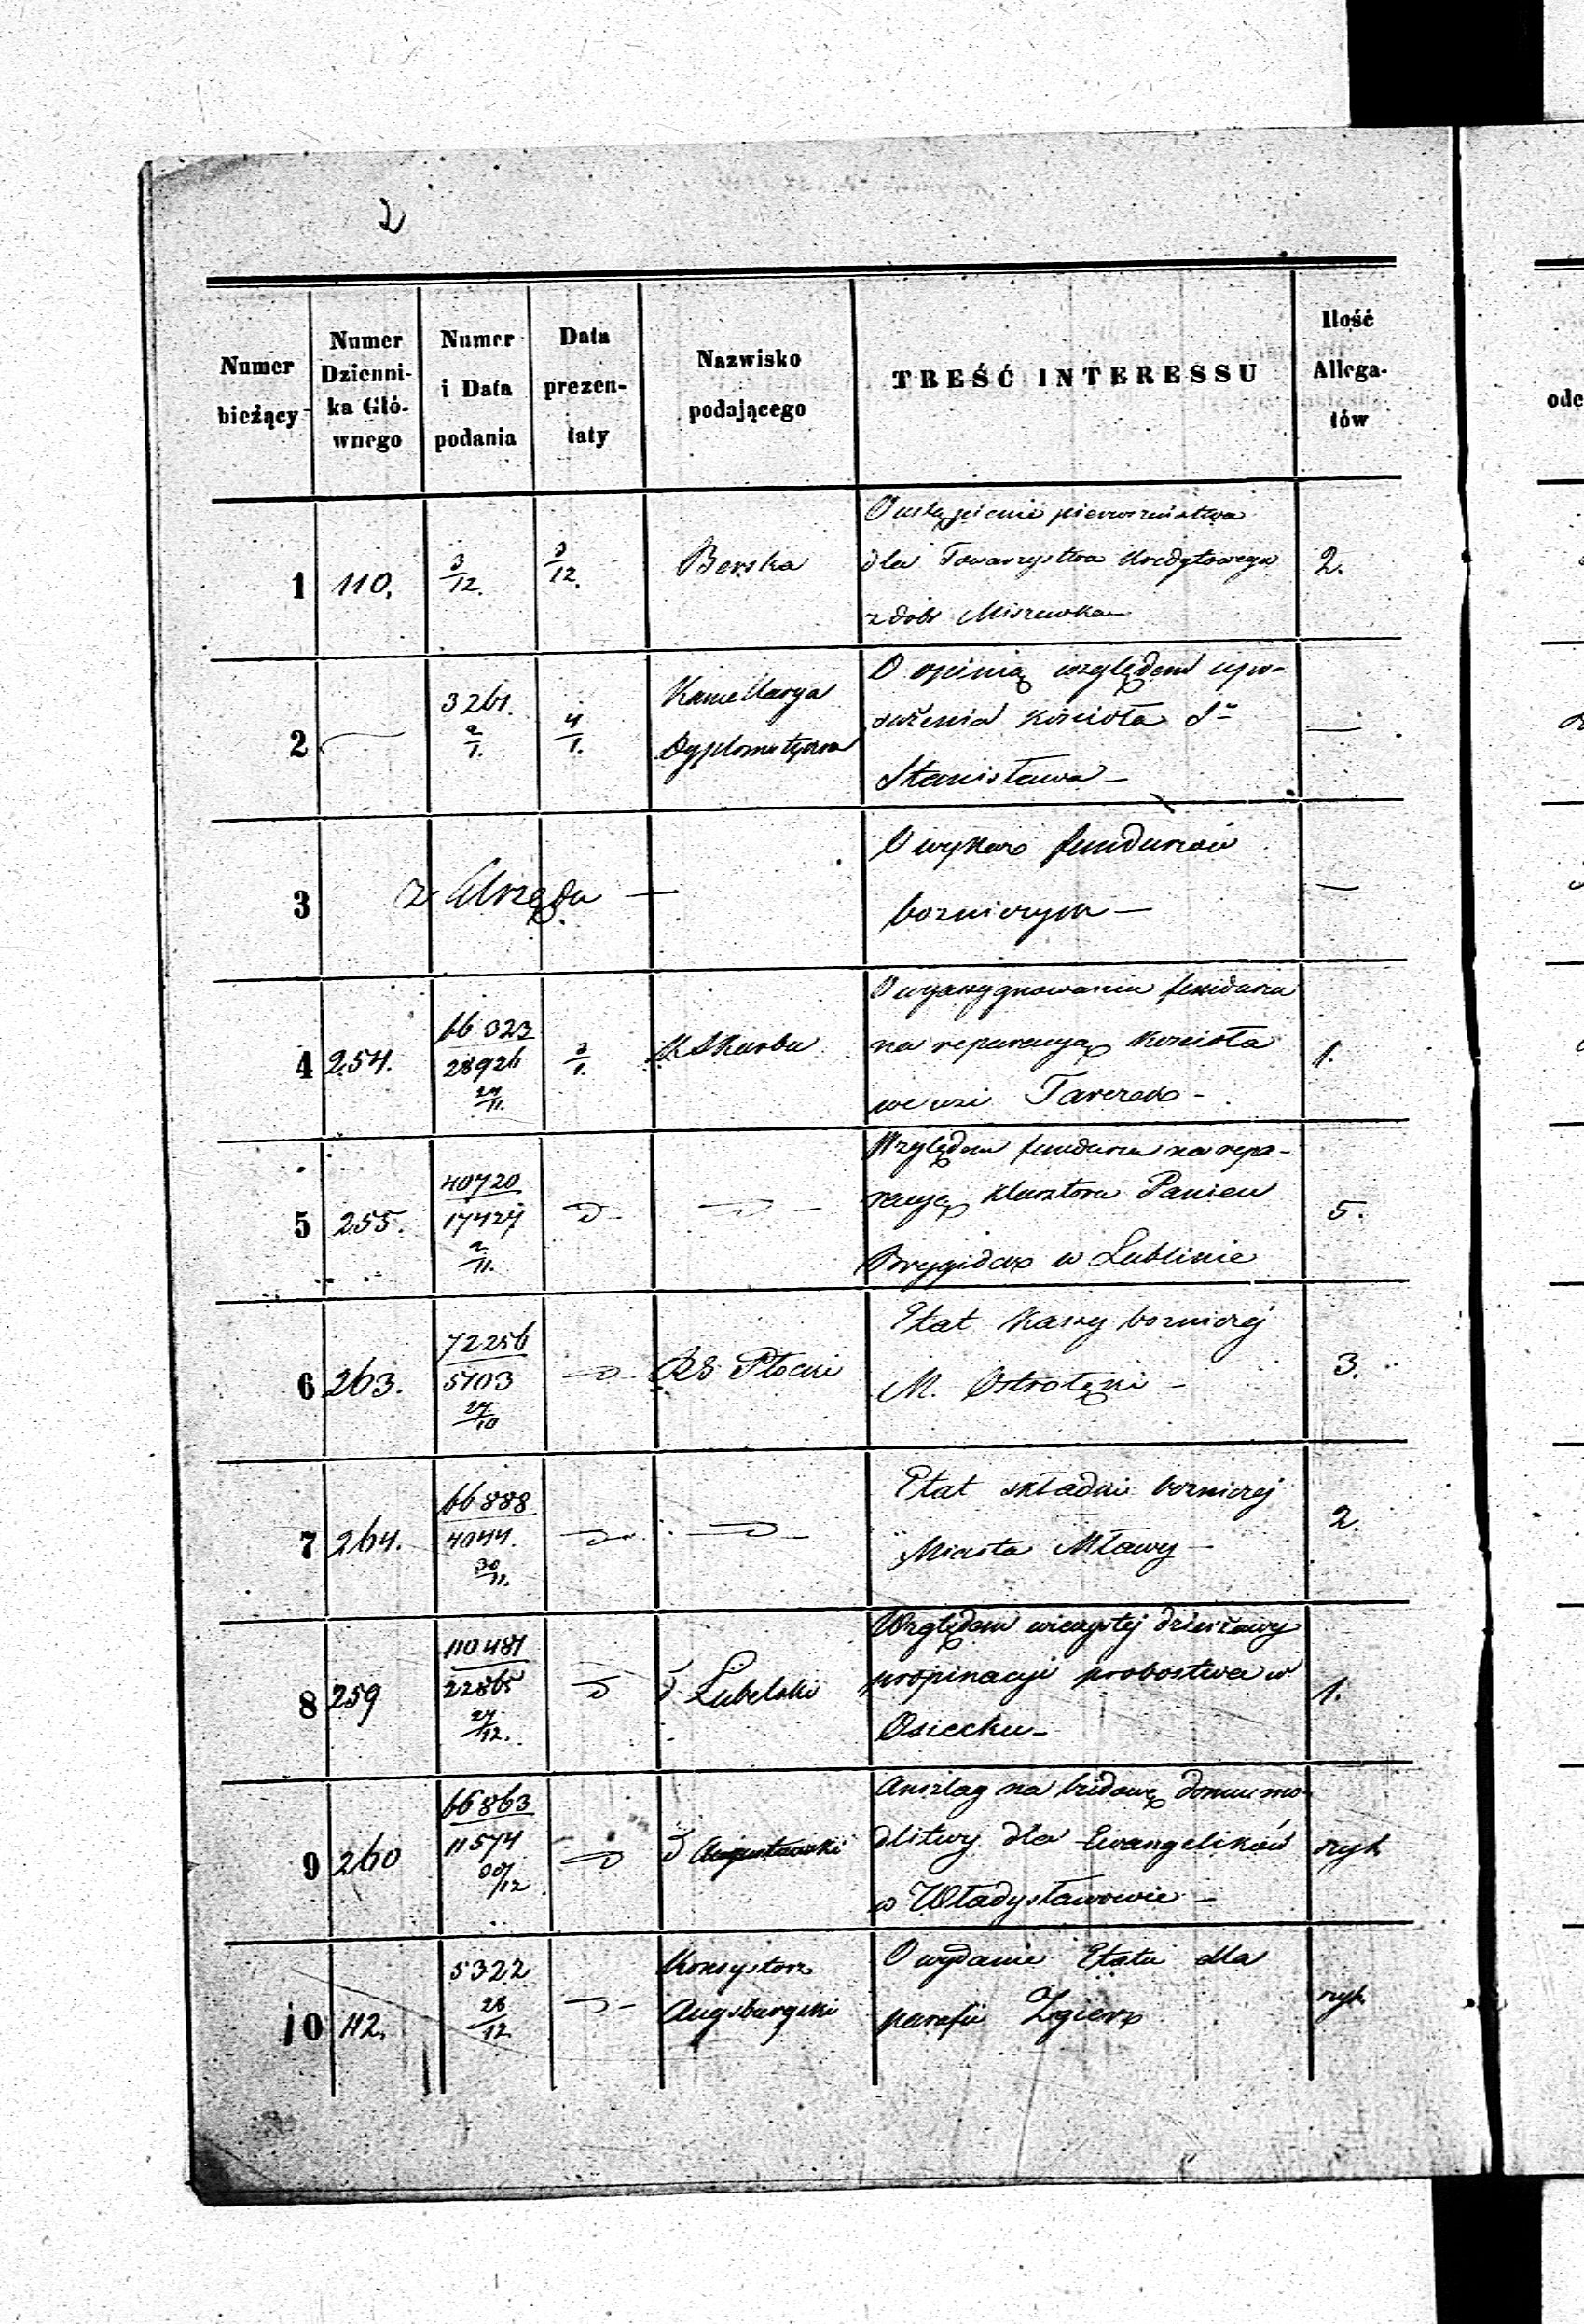 2
Numer bieżący
Numer Dzienni- ka Głó- wnego
Numer i Data podania
Data prezen- taty
Nazwisko podającego
TREŚĆ INTERESSU
Ilość Allega- tów
1 110. 3/12. 3/12. Berska 2.
O ustąpienie pierwszeństwa
dla Towarzystwa Kredytowego
z dobr Miszewka
2 3261. 2/1. 4/1.
Kancellarya
Dyplomatyczna
O opinią względem upo-
sażenia Kościoła Sgo
Stanisława
3 z Urzędu
O wykaz funduszów
bozniczych
4 254. 66323 28926 27/11. 3/1. K. Skarbu 1.
O wyassygnowaniu funduszu
na reparacyą Kościoła
we wsi
5 255. 40720 17427 2/11. D D 5.
Względem funduszu na repa-
racyą klasztoru Panien
Brygidek w Lublinie
6 263. 72256 5103 27/10 D RG Płocki 3.
Etat Kassy bozniczej
M. Ostrołęki
7 264. 66888 4044. 30/11. D D 2.
Etat składki bozniczej
Miasta Mławy
8 259 110481 22865 27/12. D D Lubelski 1.
Względem wieczystej dzierżawy
propinacyi probostwa w
Osiecku
9 260 66863 11574 /12 D D Augustowski szyk
Anszlag na budowę domu mo-
dlitwy dla Ewangelików
w Władysławowie
10 112. 5322 28/12. D szyk
Konsystorz
Augsburgski
O wydanie Etatu dla
parafii Zgierz
odc